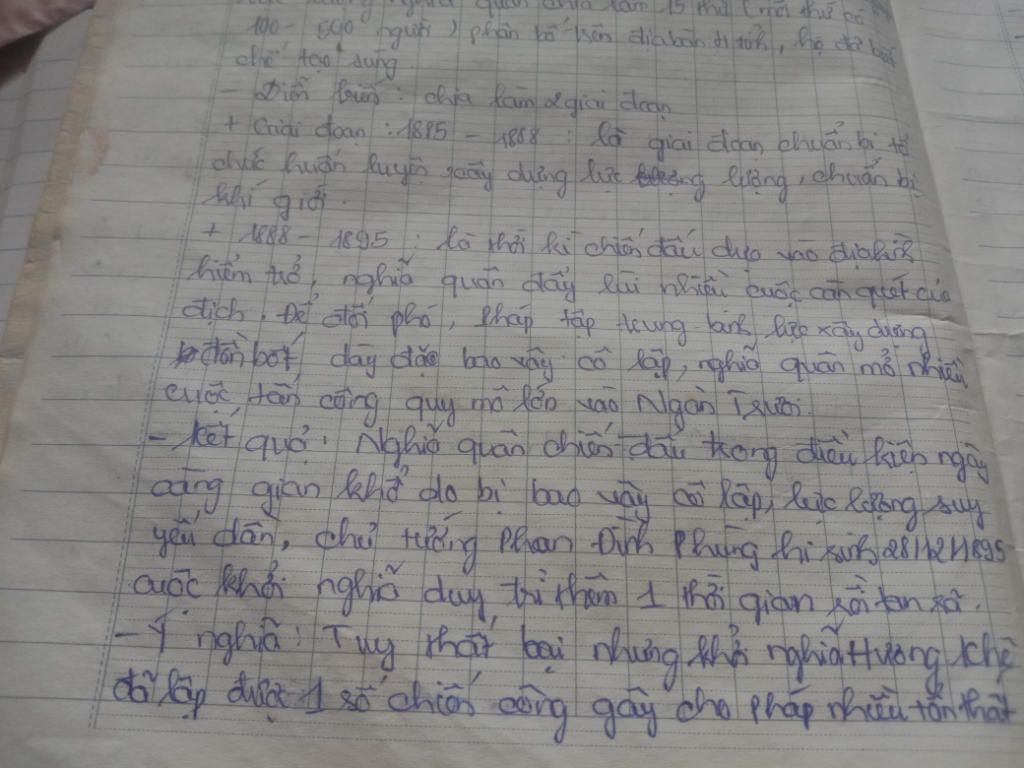 nghĩa quân chia làm 15 thứ (mỗi thứ có
100 - 500 người) phân bố trên địa bàn 4 tỉnh, họ đã biết
chế tạo súng.
- Diễn biến: chia làm 2 giai đoạn
+ Giai đoạn: 1885 - 1888: là giai đoạn chuẩn bị tổ
chức huấn luyện xây dựng lực lượng, chuẩn bị
khí giới.
+ 1888 - 1895: là thời kì chiến đấu dựa vào địa hình
hiểm trở, nghĩa quân đẩy lùi nhiều cuộc càn quét của
địch. Để đối phó, Pháp tập trung binh lực xây dựng
đồn bốt, dày đặc bao vây cô lập, nghĩa quân mở nhiều
cuộc tấn công quy mô lớn vào Ngàn Trươi.
- Kết quả: Nghĩa quân chiến đấu trong điều kiện ngày
càng gian khổ do bị bao vây cô lập, lực lượng suy
yếu dần, chủ tướng Phan Đình Phùng hi sinh 28/12/1895
cuộc khởi nghĩa duy trì thêm 1 thời gian rồi tan rã.
- Ý nghĩa: Tuy thất bại nhưng khởi nghĩa Hương Khê
đã lập được 1 số chiến công gây cho Pháp nhiều tổn thất